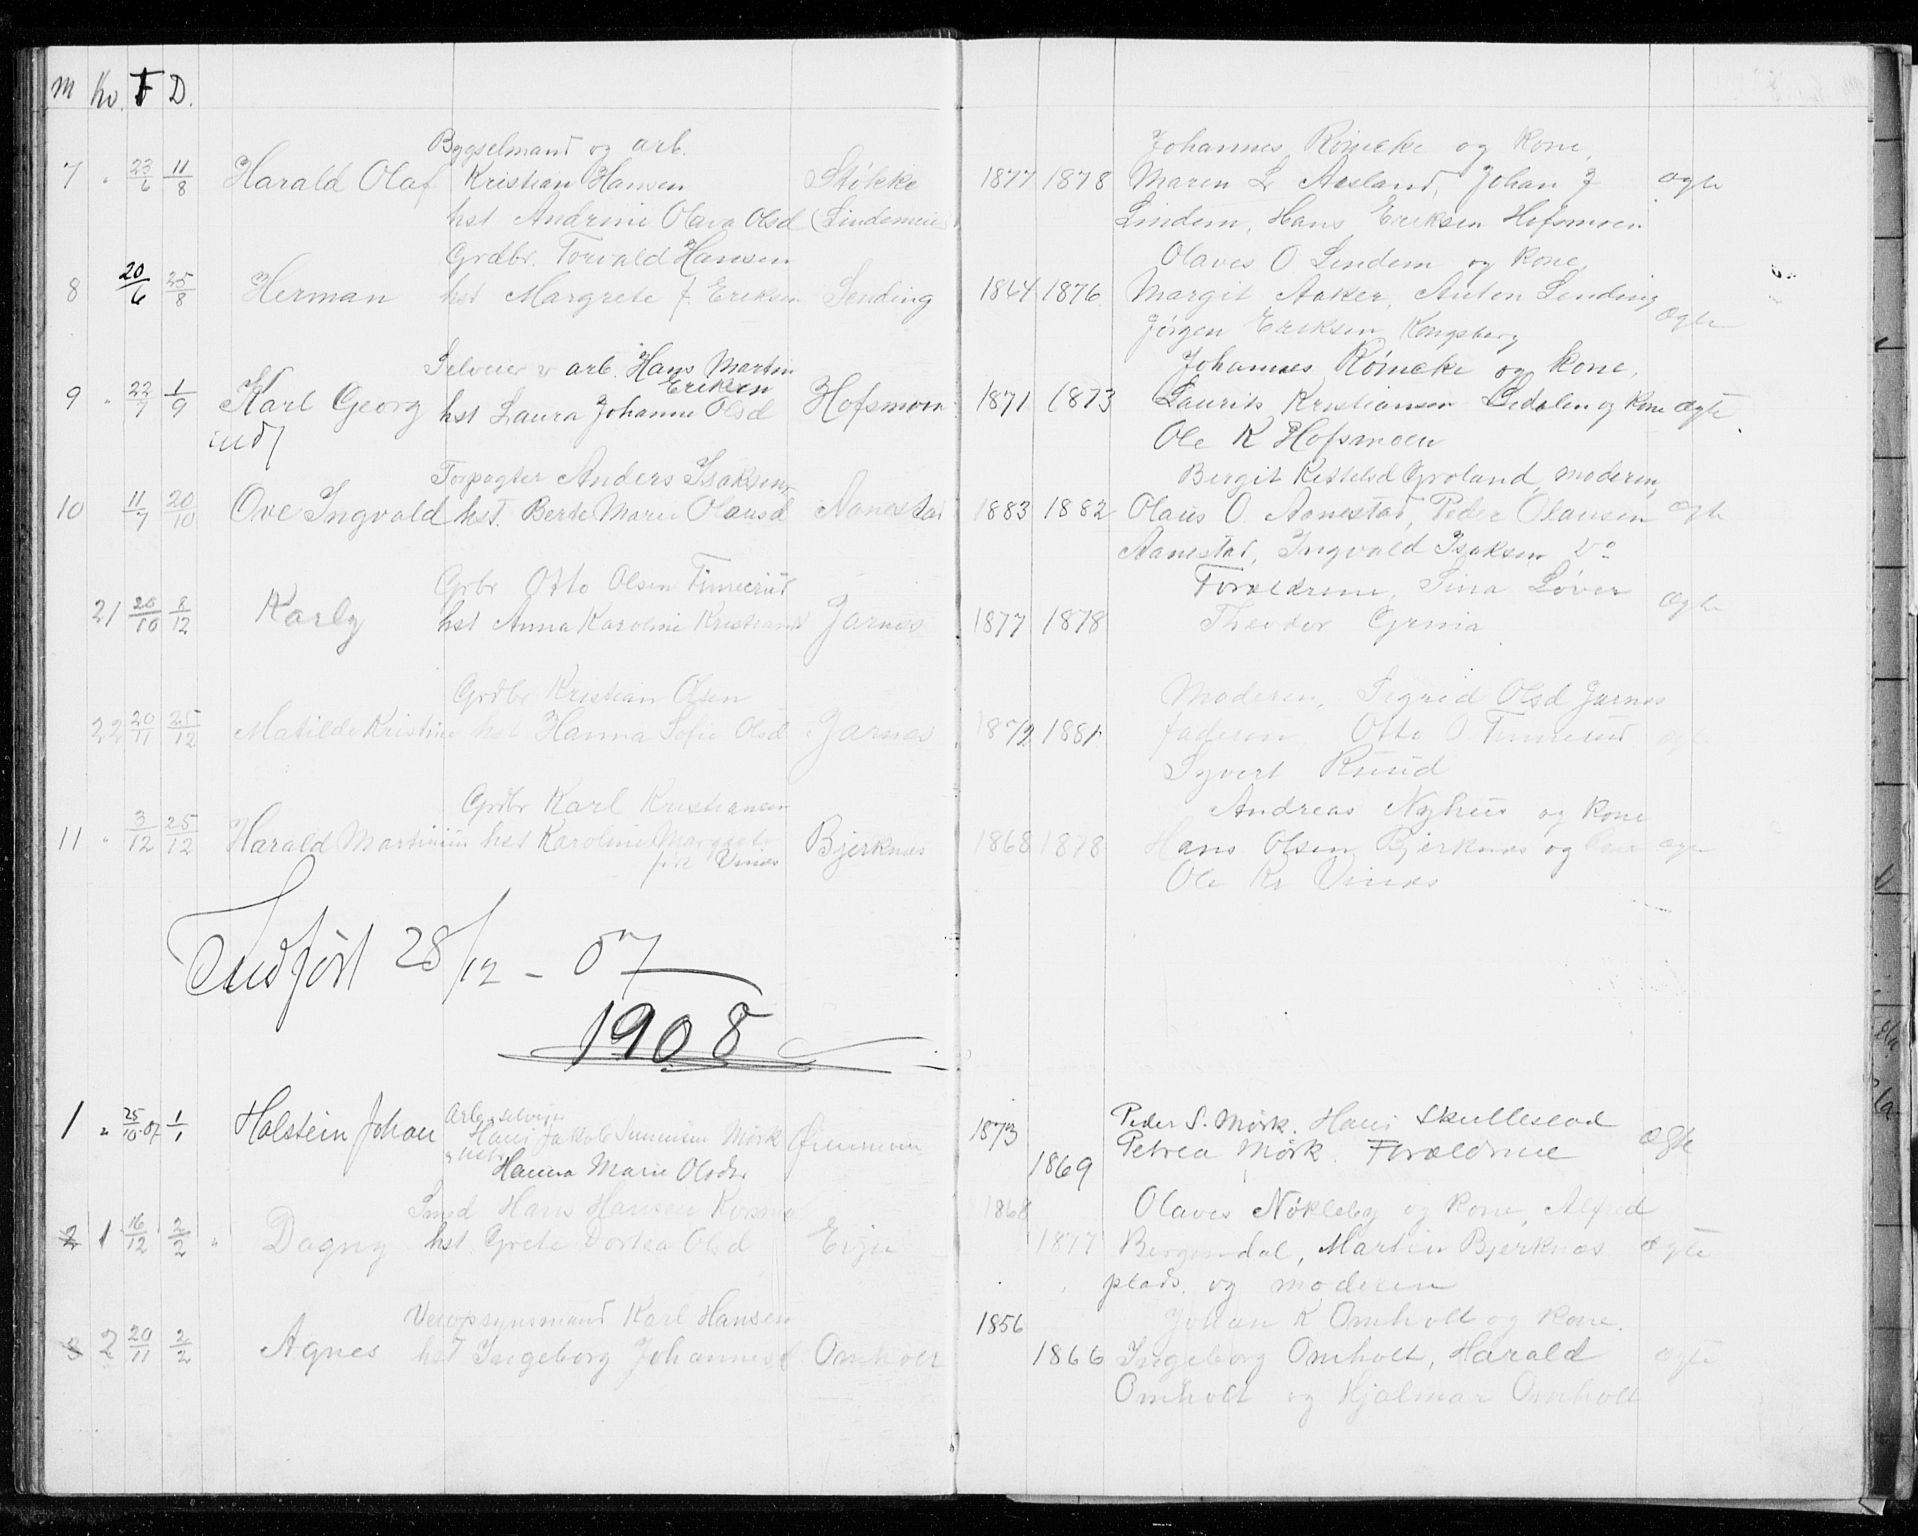 M Kv. F D.
Bygselmand og arb.
7 " 23/6 11/8 Harald Olaf Kristian Hansen Støkke
hst Andrine Olava Olsd (Lindemeie
1877 1878 Johannes Römcke og Kone,
Maren L Aasland, Johan J ægte
Lindem, Hans Eriksen Hofsmoen
Grdbr. Torvald Hansen
8 20/6 25/8 Herman hst Margrete J. Eriksen Sending
1864 1876 Olaves O Lindem og Kone,
Margit Aaker, Anton Sending ægte
Jörgen Eriksen, Kongsberg
Selveier & arb. Hans Martin
Eriksen
9 " 22/7 1/9 Karl Georg hst Laura Johanne Olsd Hofsmoen
ind/
1871 1873 Johannes Römcke og Kone,
Laurits Kristiansen Ledalen og Kone ægte.
Ole K Hofsmoen
Forpagter Anders Isaksen
10 11/7 20/10 Ove Ingvald hst. Berte Marie Olausd Aanestad
1883 1882 Bergit Kittelsd Groland, moderen,
Olaus O. Aanestad, Peder Olausen ægte
Aanestad, Ingvald Isaksen Do
Grbr Otto Olsen Finnerud
21 20/10 8/12 Karly hst Anna Karoline Kristiansd Jarnæs
1877 1878 Forældrene, Tina Løver ægte
Theodor Grina
Grdbr Kristian Olsen
22 20/11 25/12 Matilde Kristine hst Hanna Sofie Olsd Jarnæs
1872 1881 Moderen, Sigrid Olsd Jarnæs
faderen, Otto O Finnerud
Syvert Ruud
Grdbr Karl Kristiansen
11 " 3/12 25/12 Harald Martinius hst Karoline Margret. Bjerknæs
født Vinæs
1868 1878 Andreas Nyhus og Kone
Hans Olsen Bjerknæs og Kone ægte
Ole Kr Vinæs
Indført 28/12 - 07
1908
Arb. & selveier
1 " 25/10-07 1/1 Halstein Johan Hans Jakob Mørk
& Hstr
Hanna Marie Olsdtr
1873 1869 Peder S. Mørk. Hans Skullestad
Petrea Mørk. Forældrene ægte
Smed Hans Hansen
2 1 16/12 2/2 " Dagny hst. Grete Dortea Olsd
1868 1877 Olaves Nökleby og Kone, Alfred
Bergendal, Martin Bjerknæs ægte
plads, og moderen
Veiopsynsmand Karl Hansen
3 2 20/11 2/2 Agnes hst Ingeborg Johannesd Omholt
1856 1866 Johan K Omholt og Kone.
Ingeborg Omholt, Harald ægte
Omholt og Hjalmar Omholt